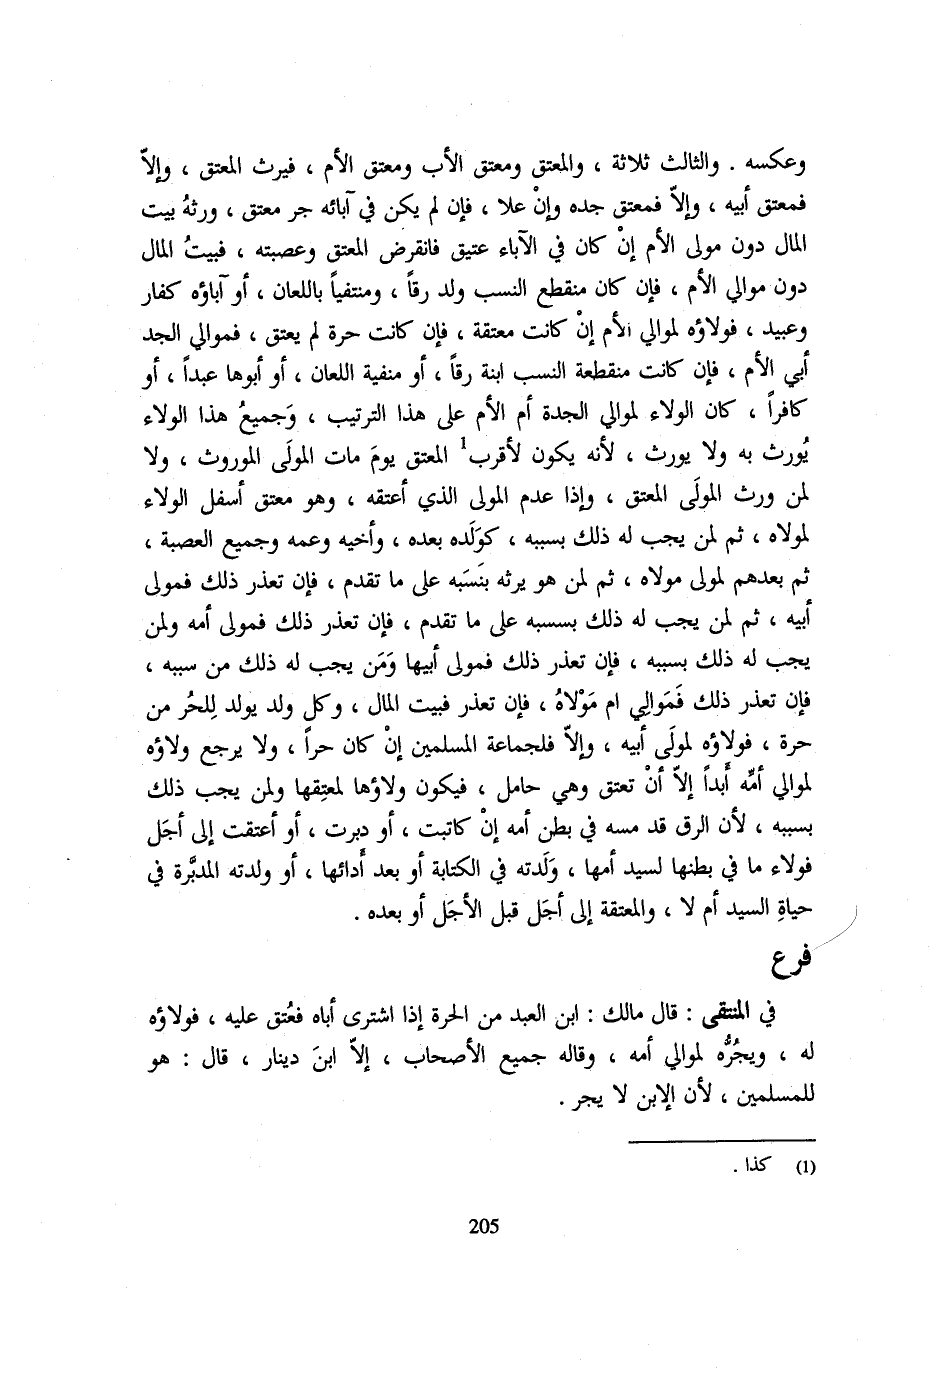 وعكسه . والثالث ثلاثة ، والمعتق ومعتق الأب ومعتق الأم ، فيرث المعتق ، وإلاّ
فمعتق أبيه ، وإلاّ فمعتق جده وإنْ علا ، فإن لم يكن في آبائه جر معتق ، ورثهُ بيت
المال دون مولى الأم إنْ كان في الآباء عتيق فانقرض المعتق وعصبته ، فبيتُ المال
دون موالي الأم ، فإن كان منقطع النسب ولد رقاً ، ومنتفياً باللعان ، أو آباؤه كفار
وعبيد ، فولاؤه لموالي الأم إنْ كانت معتقة ، فإن كانت حرة لم يعتق ، فموالي الجد
أبي الأم ، فإن كانت منقطعة النسب ابنة رقاً ، أو منفية اللعان ، أو أبوها عبداً ، أو
كافراً ، كان الولاء لموالي الجدة أم الأم على هذا الترتيب ، وَجميعُ هذا الولاء
يُورث به ولا يورث ، لأنه يكون لأقرب1 المعتق يومَ مات المولَى الموروث ، ولا
لمن ورث المولَى المعتق ، وإذا عدم المولى الذي أعتقه ، وهو معتق أسفل الولاء
لمولاه ، ثم لمن يجب له ذلك بسببه ، كوَلَده بعده ، وأخيه وعمه وجميع العصبة ،
ثم بعدهم لمولى مولاه ، ثم لمن هو يرثه بنَسَبه على ما تقدم ، فإن تعذر ذلك فمولى
أبيه ، ثم لمن يجب له ذلك بسسبه على ما تقدم ، فإن تعذر ذلك فمولى أمه ولمن
يجب له ذلك بسببه ، فإن تعذر ذلك فمولى أبيها وَمَن يجب له ذلك من سببه ،
فإن تعذر ذلك فَمَوالِي ام مَوْلاهُ ، فإن تعذر فبيت المال ، وكل ولد يولد لِلحُر من
حرة ، فولاؤه لمولَى أبيه ، وإلاّ فلجماعة المسلمين إنْ كان حراً ، ولا يرجع ولاؤه
لموالي أمِّه أَبداً إلاّ أنْ تعتق وهي حامل ، فيكون ولاؤها لمعتِقها ولمن يجب ذلك
بسببه ، لأن الرق قد مسه في بطن أمه إنْ كاتبت ، أو دبرت ، أو أعتقت إلى أجَل
فولاء ما في بطنها لسيد أمها ، وَلَدته في الكتابة أو بعد أَدائها ، أو ولدته المدبَّرة في
حياةِ السيد أم لا ، والمعتقة إلى أجَل قبل الأجَل أو بعده .
فرع
في المنتقى : قال مالك : ابن العبد من الحرة إذا اشترى أباه فعُتق عليه ، فولاؤه
له ، ويجُرُّه لموالي أمه ، وقاله جميع الأصحاب ، إلاّ ابنَ دينار ، قال : هو
للمسلمين ، لأن الإبن لا يجر .
(1) كذا .
205